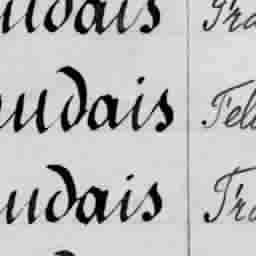 udais Tra
udais Tele
udais Tra